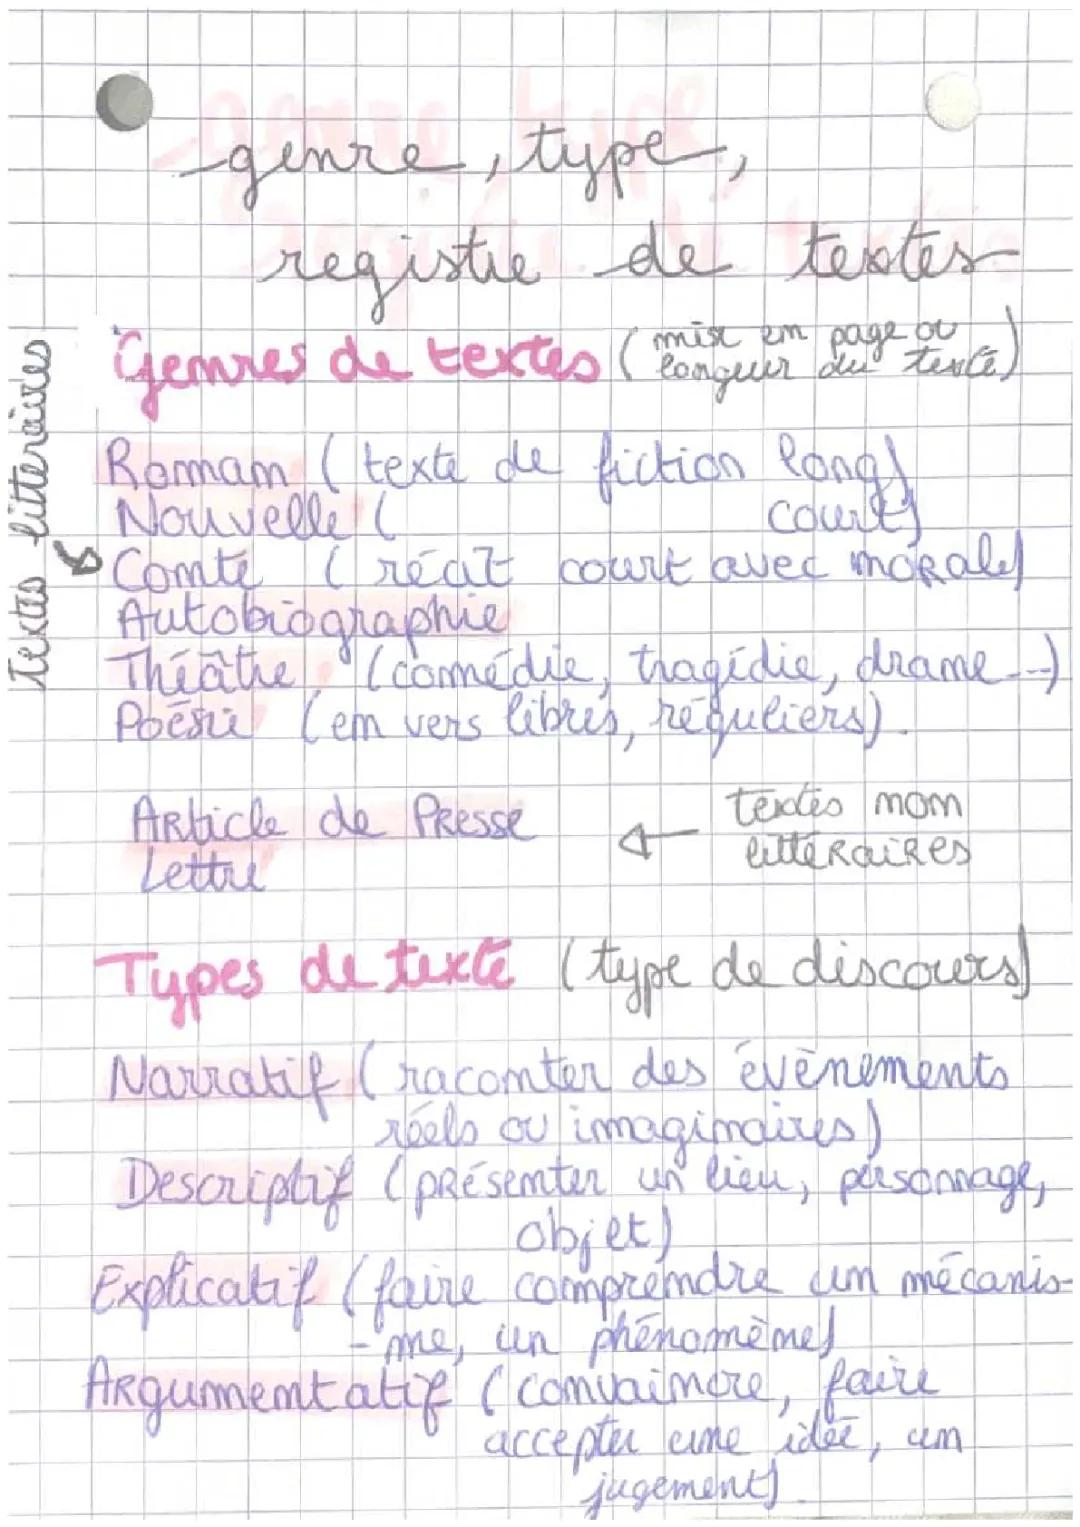 genre, type,
registre de textes
Genres de textes (mise en page ou
longueur du texte)
Textes littéraires
Roman (texte de fiction long)
Nouvelle ( court)
Conte (récit court avec morale)
Autobiographie
Théâtre (comédie, tragédie, drame...)
Poésie (en vers libres, réguliers).
Article de Presse
Lettre
textes non
littéraires
Types de texte (type de discours)
Narratif (raconter des évènements
réels ou imaginaires)
Descriptif (présenter un lieu, personnage,
objet)
Explicatif (faire comprendre un mécanis-
-me, un phénomène)
Argumentatif (convaincre, faire
accepter une idée, un
jugement).